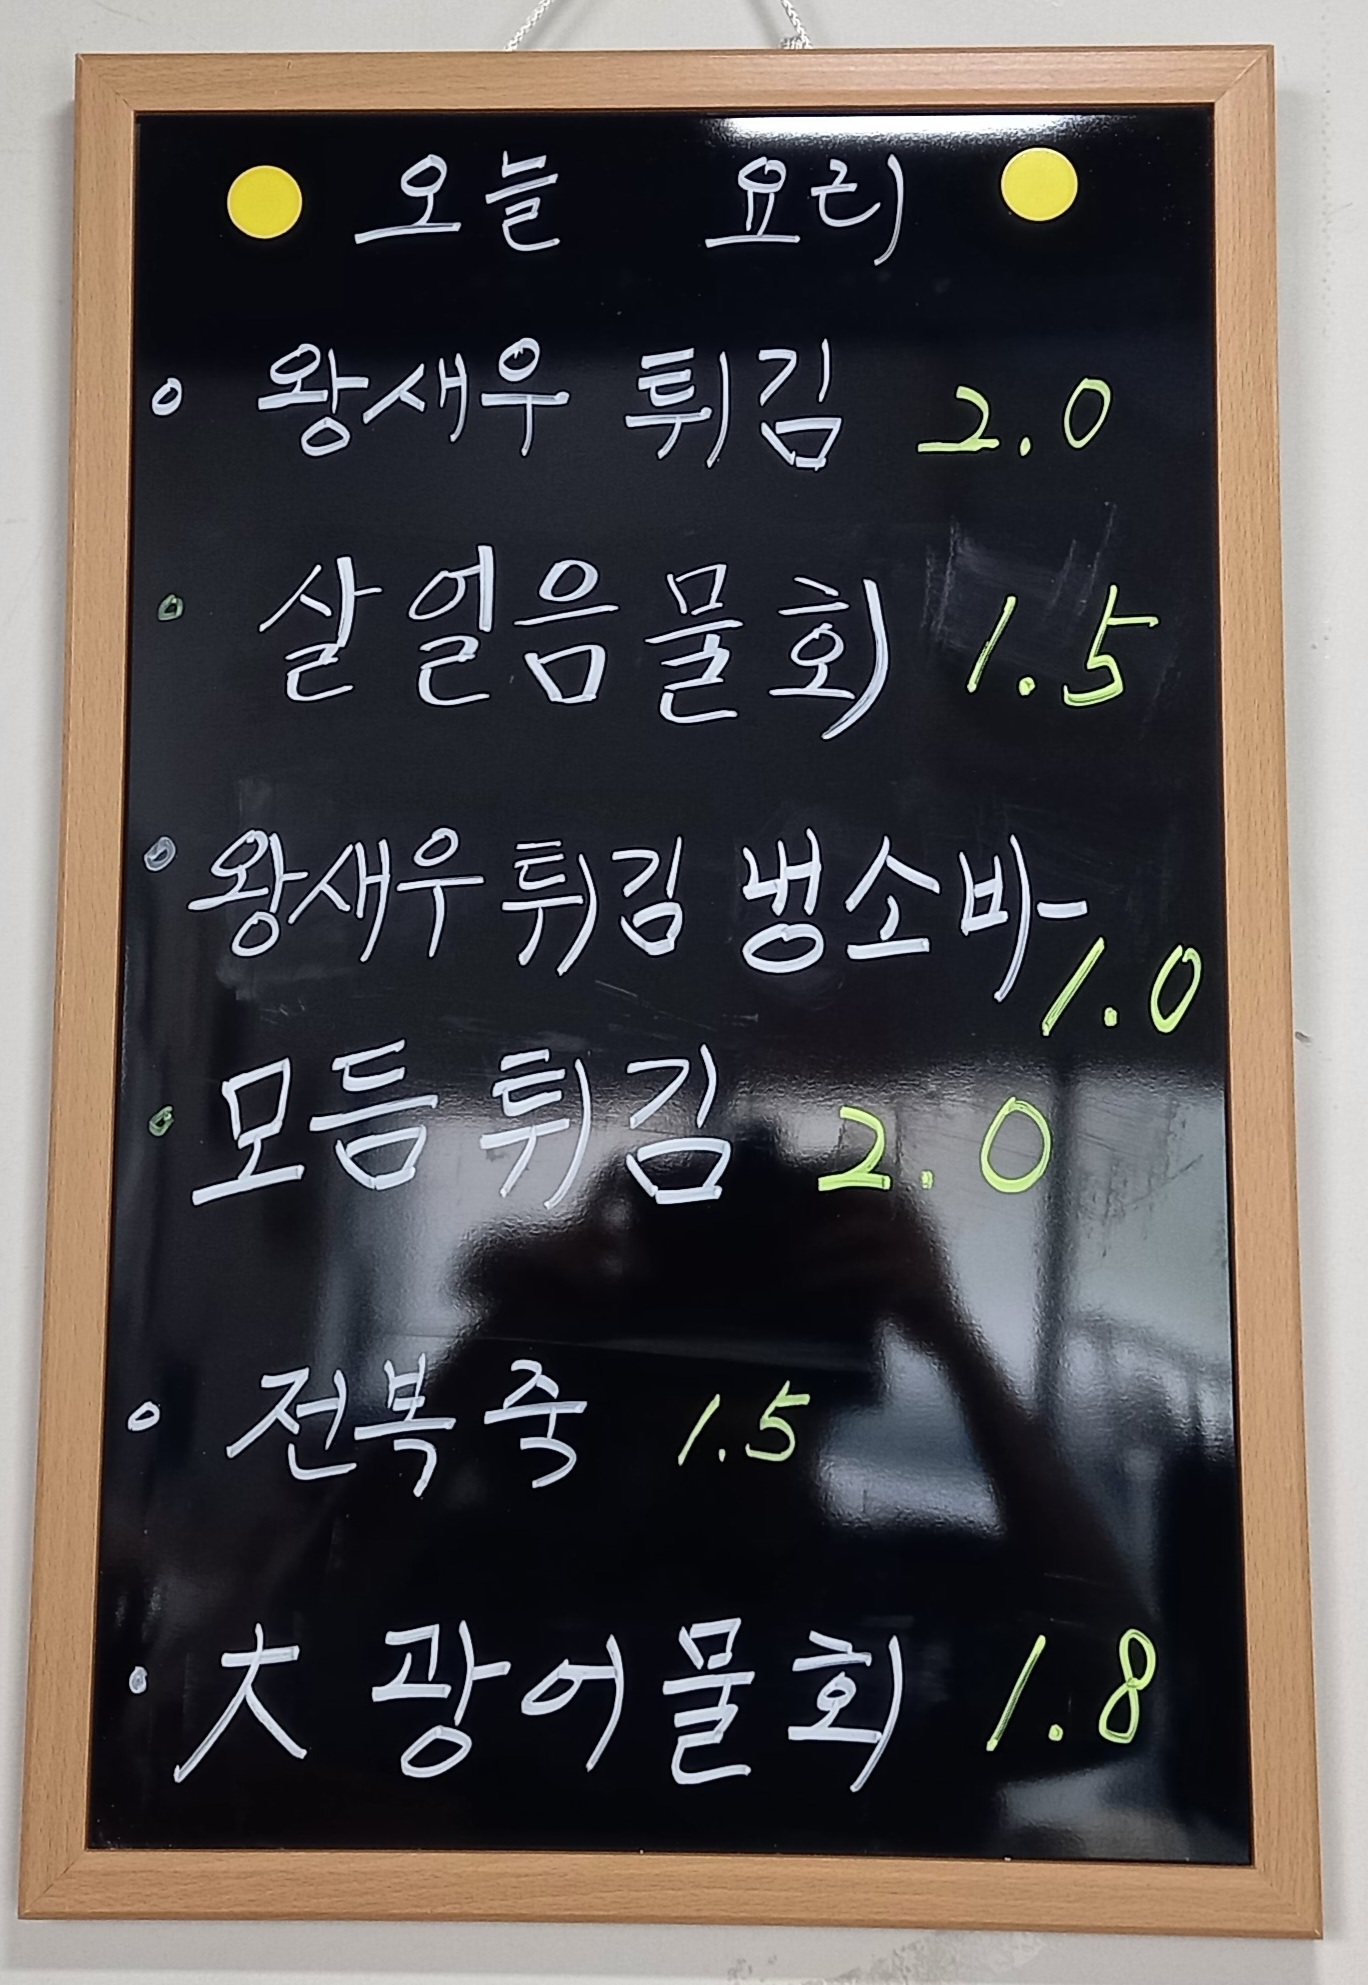 오늘 요리
왕새우 튀김 2.0
살얼음물회 1.5
왕새우 튀김 냉소바 1.0
모듬튀김 2.0
전복죽 1.5
大 광어물회 1.8